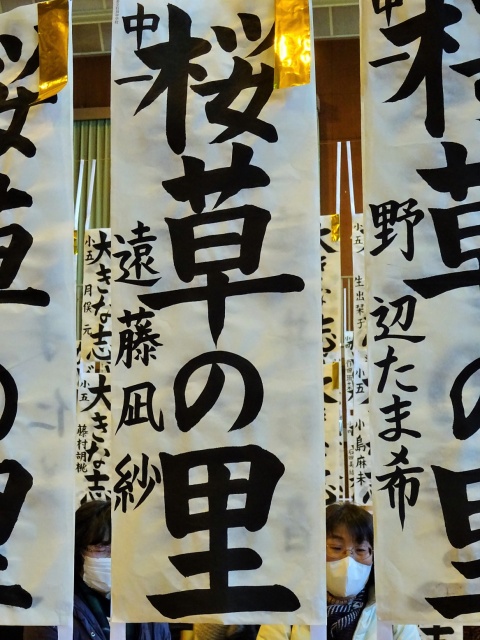 桜草の里
中一 野辺たま希
桜草の里
中一 遠藤凪紗
桜草の里
小五 生出栞子
小五 小島麻未
大きな志
小五 藤村胡桃
大きな志
小五 月俣元